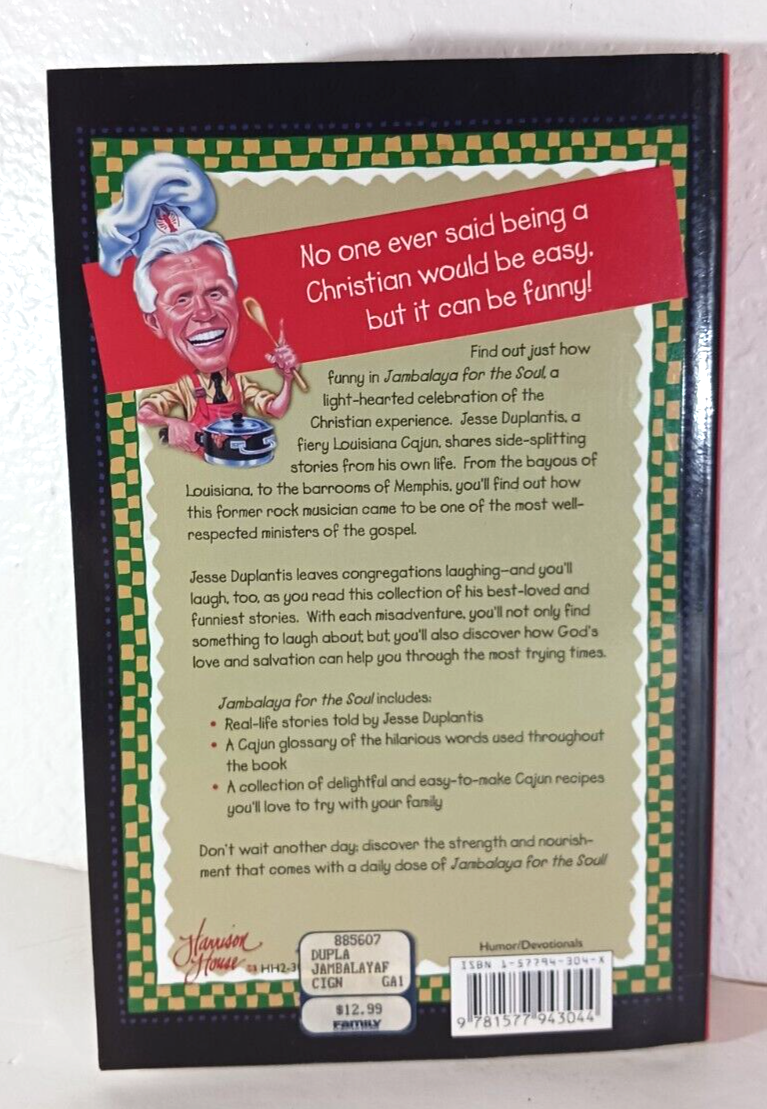 No one ever said being a
Christian would be easy,
but it can be funny!
Find out just how
funny in Jambalaya for the Soul, a
light-hearted celebration of the
Christian experience. Jesse Duplantis, a
fiery Louisiana Cajun, shares side-splitting
stories from his own life. From the bayous of
Louisiana, to the barrooms of Memphis, you'll find out how
this former rock musician came to be one of the most well-
respected ministers of the gospel.
Jesse Duplantis leaves congregations laughing—and you'll
laugh, too, as you read this collection of his best-loved and
funniest stories. With each misadventure, you'll not only find
something to laugh about, but you'll also discover how God's
love and salvation can help you through the most trying times.
Jambalaya for the Soul includes:
• Real-life stories told by Jesse Duplantis
• A Cajun glossary of the hilarious words used throughout
the book
• A collection of delightful and easy-to-make Cajun recipes
you'll love to try with your family
Don't wait another day; discover the strength and nourish-
ment that comes with a daily dose of Jambalaya for the Soul!
Harrison
House
HH2-3
885607
DUPLA
JAMBALAYAF
CIGN GA1
$12.99
FAMILY
Humor/Devotionals
ISBN 1-57794-304-X
9 781577 943044